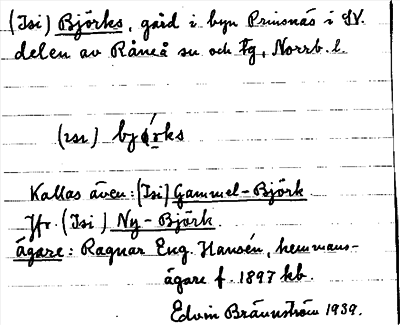 (Isi) Björks, gård i byn Prinsnäs i SV.
delen av Råneå sn och Tg, Norrb. l.
(ısı) bjö́rks
Kallas även: (Isi) Gammel-Björk
Jfr. (Isi) Ny-Björk.
ägare: Ragnar Eng. Hansén, hemmans-
ägare f. 1897 kb.
Edvin Brännström 1939.